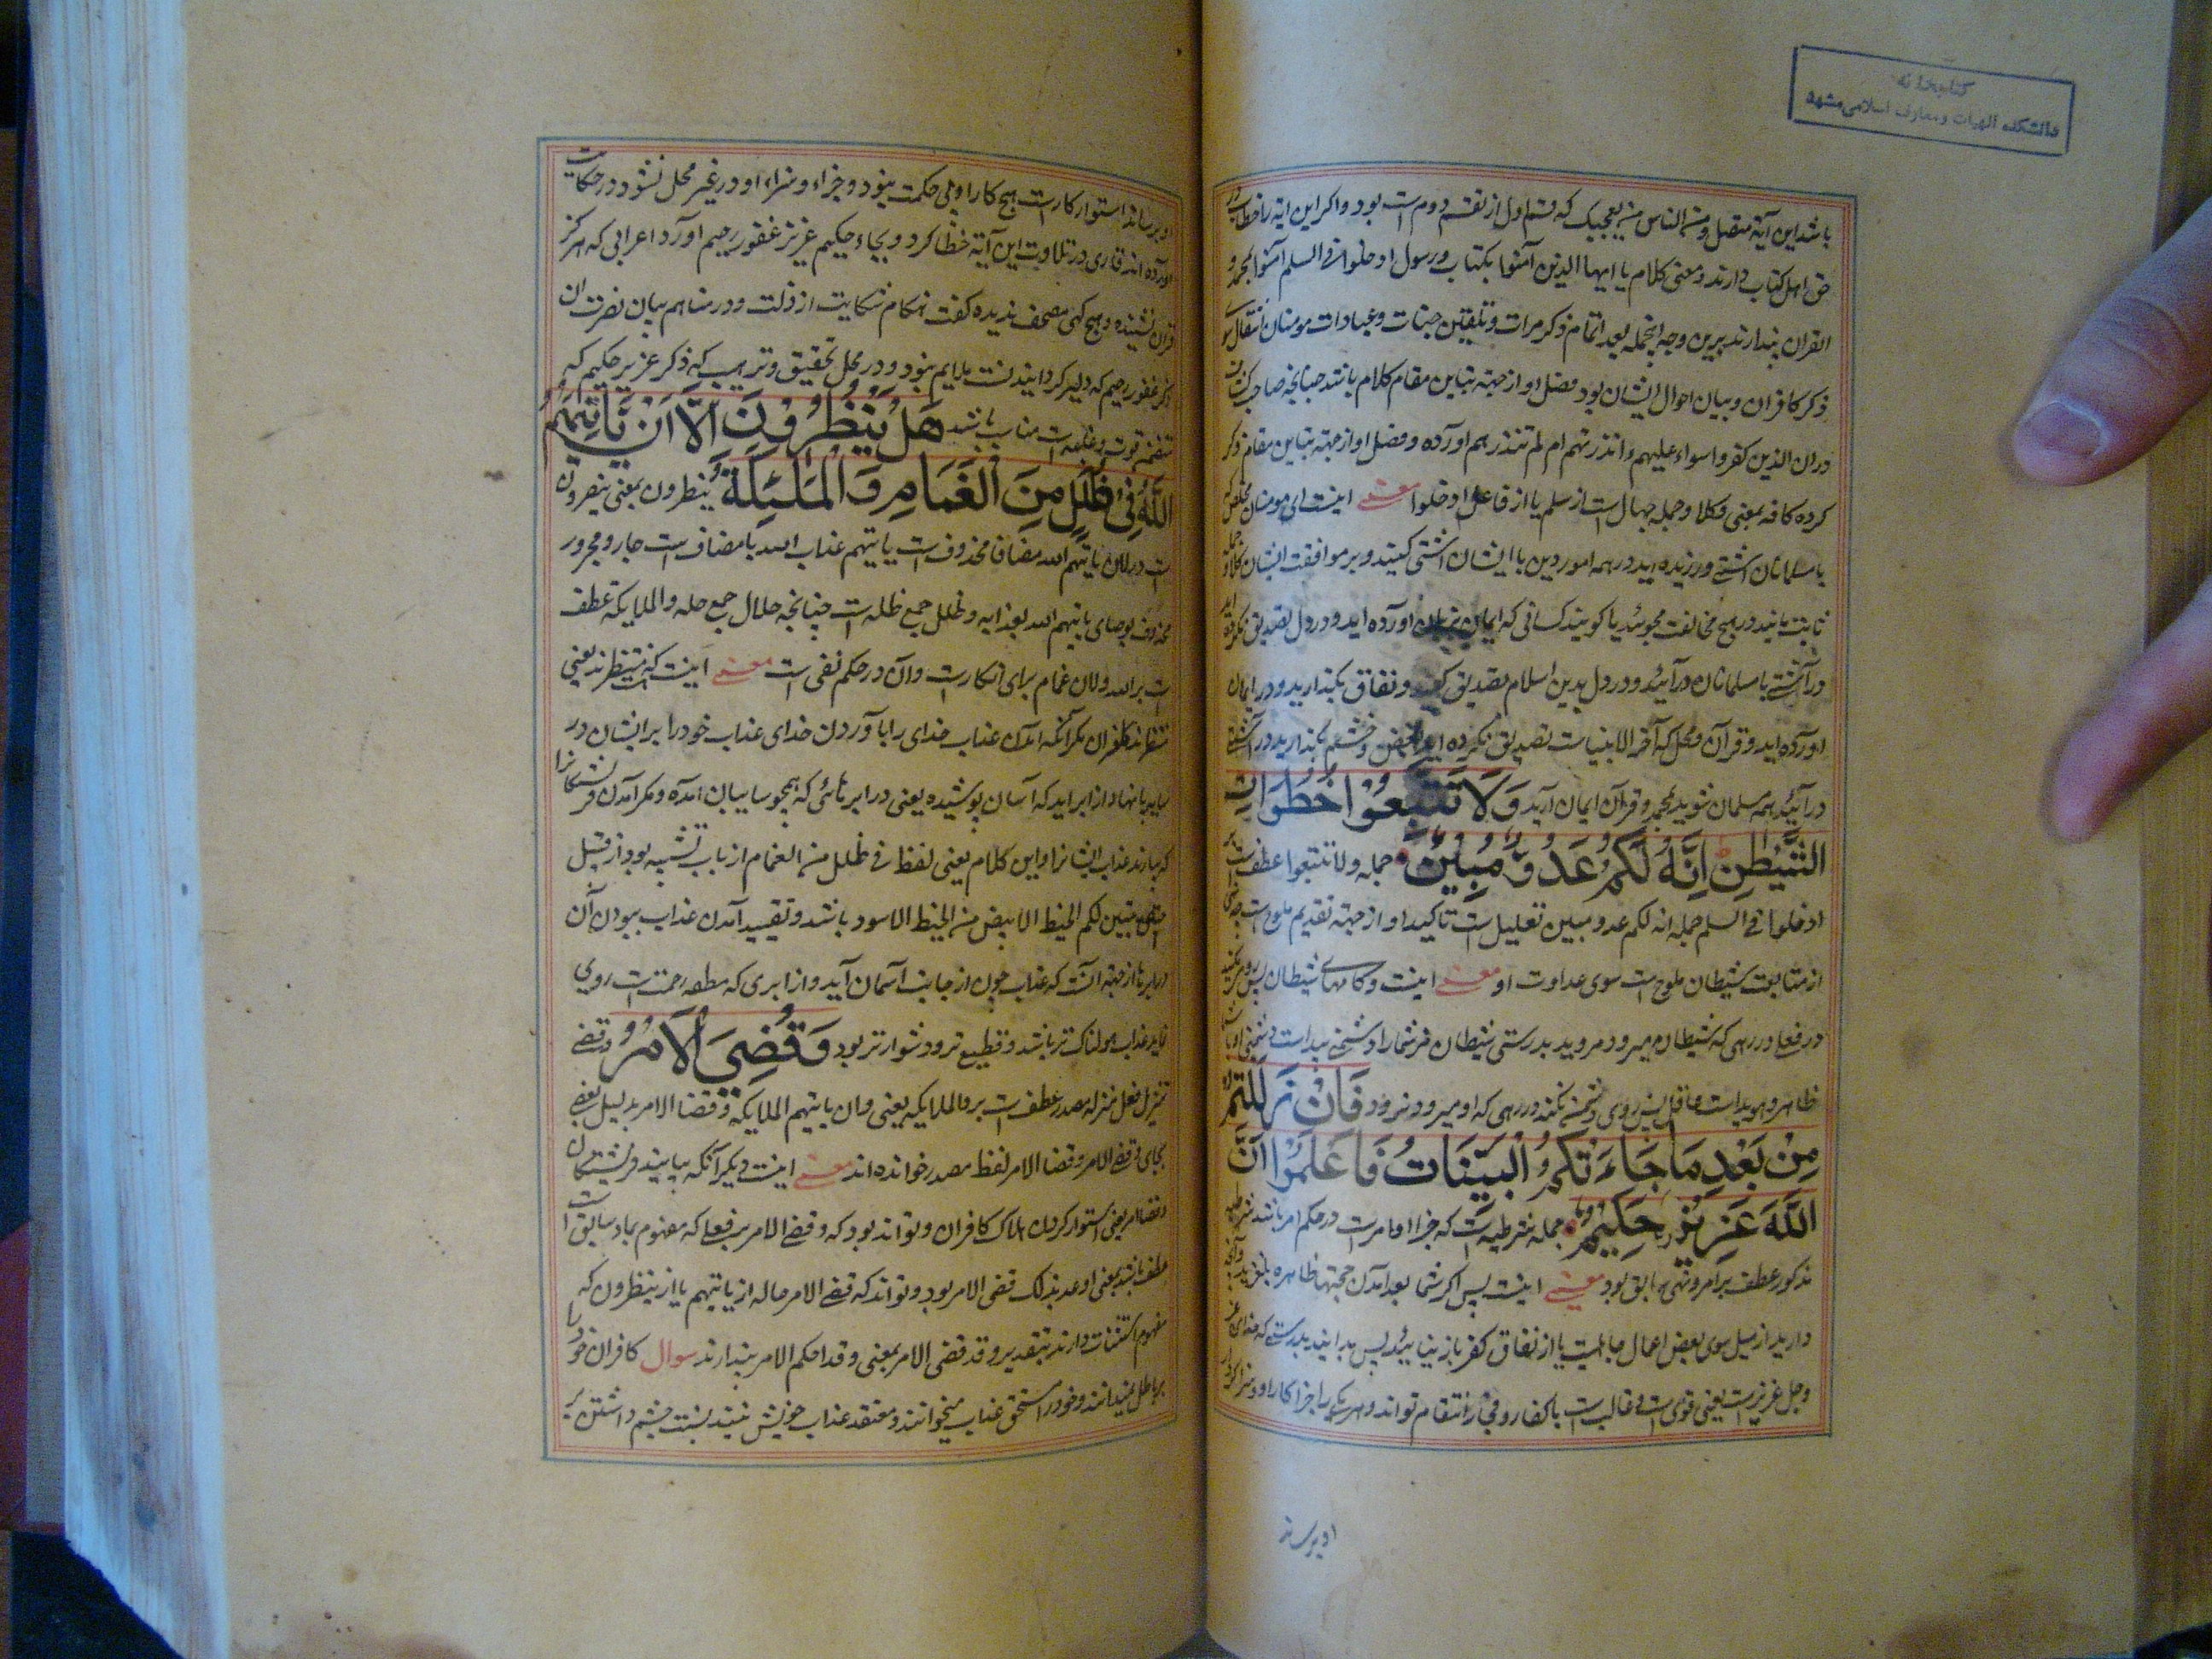 کتابخانه
دانشکده الهیات و معارف اسلامی مشهد
باشد این آیة متصل و من الناس من یعجبک که قسم اول از تقسیم دوم است بود و اگر این ایه را خطاب
حق اهل کتاب دارند و معنی کلام یا ایها الذین آمنوا بکتاب و رسول ادخلوا فی السلم آمنوا بمحمد و
القران پندارند برین وجه اینجمله بعد اتمام ذکر مرات و تلقین جنات و عبادات مومنان انتقال
ذکر کافران و بیان احوال ایشان بود فصل او از جهة تباین مقام کلام باشد چنانچه صاحب کشاف
دران الذین کفروا سواء علیهم ءانذرتهم ام لم تنذرهم اورده و فصل او از جهة تباین مقام ذکر
کرده کافه بمعنی و کلا و جمله حال است از سلم یا از فاعل ادخلوا معنی اینست ای مومنان مخلص که
با مسلمانان آشتی ورزیده اید در همه امور دین با ایشان آشتی کنید و بر موافقت ایشان
ثابت باشید در هیچ مخالفت مجوئید یا گویند کسانی که ایمان بزبان اورده اید و در دل تصدیق نکرده
در آشتی با مسلمانان درآئید و در دل بدین اسلام تصدیق کنید و نفاق بگذارید و در ایمان
اورده اید و قرآن و محمد که آخر الانبیاست تصدیق نکرده اید بغض و خشم بگذارید در آشتی
درآئید همه مسلمان شوید بمحمد و قرآن ایمان آرید وَلَا تَتَّبِعُوْا خُطُوَاتِ
الشَّيْطٰنِ اِنَّهٗ لَكُمْ عَدُوٌّ مُبِيْنٌ جمله و لا تتبعوا عطف
ادخلوا فی السلم جمله انه لکم عدو مبین تعلیل است تاکید او از جهة تقدیم ملوح است
از متابعت شیطان ملوح است سوی عداوت او معنی اینست و گامهای شیطان پس روی مکنید
در رهی که شیطان میرود مروید بدرستی شیطان مر شمارا دشمنی پیداست دشمنی او
ظاهر و هویداست عاقل پس روی دشمن نکند در رهی که او میرود نرود فَاِنْ زَلَلْتُمْ
مِنْ بَعْدِ مَا جَاءَتْكُمُ الْبَيِّنَاتُ فَاعْلَمُوْا اَنَّ
اللّٰهَ عَزِيْزٌ حَكِيْمٌ جمله شرطیه است که جزا او امر است در حکم امر باشد
مذکور عطف بر امر و نهی سابق بود معنی اینست پس اگر شما بعد آمدن حجتها ظاهره بلغزید
دارید از میل سوی بعض اعمال جاهلیت یا از نفاق کفر باز نیائید پس بدانید بدرستی که خدای عز
و جل عزیز است یعنی قوی است و غالب است با کفار و فجار انتقام تواند و هر یکی را جزا کار او و سزا کردار
او برساند
او برساند استوار کار است هیچ کار او بی حکمت نبود و جزاء و سزاء او در غیر محل نشود در حکایت
اورده اند قاری در تلاوت این آیة خطا کرد و بجاء حکیم عزیز غفور رحیم اورد اعرابی که هرگز
قران نشنیده و هیچ گهی مصحف ندیده گفت هنگام شکایت از ذلت و در مناهم بیان نصرت ان
ذکر غفور رحیم که دلیر گردانیدنست ملایم نبود و در محل تحقیق و ترهیب که ذکر عزیز حکیم که
متضمن قوت و غلبه است مناسب باشد هَلْ يَنْظُرُوْنَ اِلَّا اَنْ يَأْتِيَهُمُ
اللّٰهُ فِیْ ظُلَلٍ مِنَ الْغَمَامِ وَالْمَلٰئِكَةُ ینظرون بمعنی ینتظرون
است در ان یاتیهم الله مضافا محذوف است یاتیهم عذاب الله با مضاف است جار و مجرور
محذوف بود ای یاتیهم الله بعذابه و ظلل جمع ظله است چنانچه حلال جمع حله و الملایکه عطف
است بر الله و لان غمام برای انکار است وان در حکم نفی است معنی اینست که منتظرند یعنی
منتظرند کافران مگر آنکه آمدن عذاب خدای را با آوردن خدای عذاب خود را بر ایشان در
سایه بانها و از ابر اید که آسمان پوشیده یعنی در ابرهائی که همچو سایبان آمده و مگر آمدن فرشتگانرا
که بیارند عذاب ایشانرا و این کلام یعنی لفظ فی ظلل من الغمام از باب تشبیه بود از قبیل
حتی یتبین لکم الخیط الابیض من الخیط الاسود باشد و تقیید آمدن عذاب ببودن آن
در ابرها از جهة آنست که عذاب چون از جانب آسمان آید و از ابری که مطعه رحمت است روی
نماید عذاب هولناک تر باشد و قطیع تر و دشوارتر بود وَقُضِيَ الْاَمْرُ و قضی
تنزیل فعل منزله مصدر عطف است بر و الملایکه یعنی و ان یاتیهم الملایکة و قضا الامر بدلیل بعضی
بجای و قضی الامر و قضا الامر لفظ مصدر خوانده اند معنی اینست دیگر آنکه بیایند فرشتگان
و قضا امر یعنی استوار کردن هلاک کافران و تواند بود که و قضی الامر بر فعلی که مفهوم بماد سابق است
عطف باشد بمعنی اوعد بذلک قضی الامر بود و تواند که قضی الامر حاله از یاتیهم یا از ینتظرون که
مفهوم استثنات دارند بتقدیر و قد قضی الامر بمعنی و قد احکم الامر پندارند سوال کافران خود را
بر باطل نمیدانند و خود را مستحق عذاب نمیخوانند و معتقد عذاب خویش نیند نسبت چشم داشتن بر